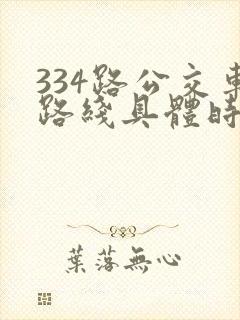 334路公交車
路綫具體時
葉落無心